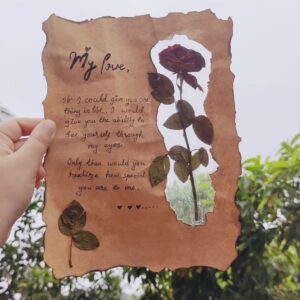 My love,
If I could give you one
thing in life, I would
give you the ability to
see yourself through
my eyes.
Only then would you
realize how special
you are to me.